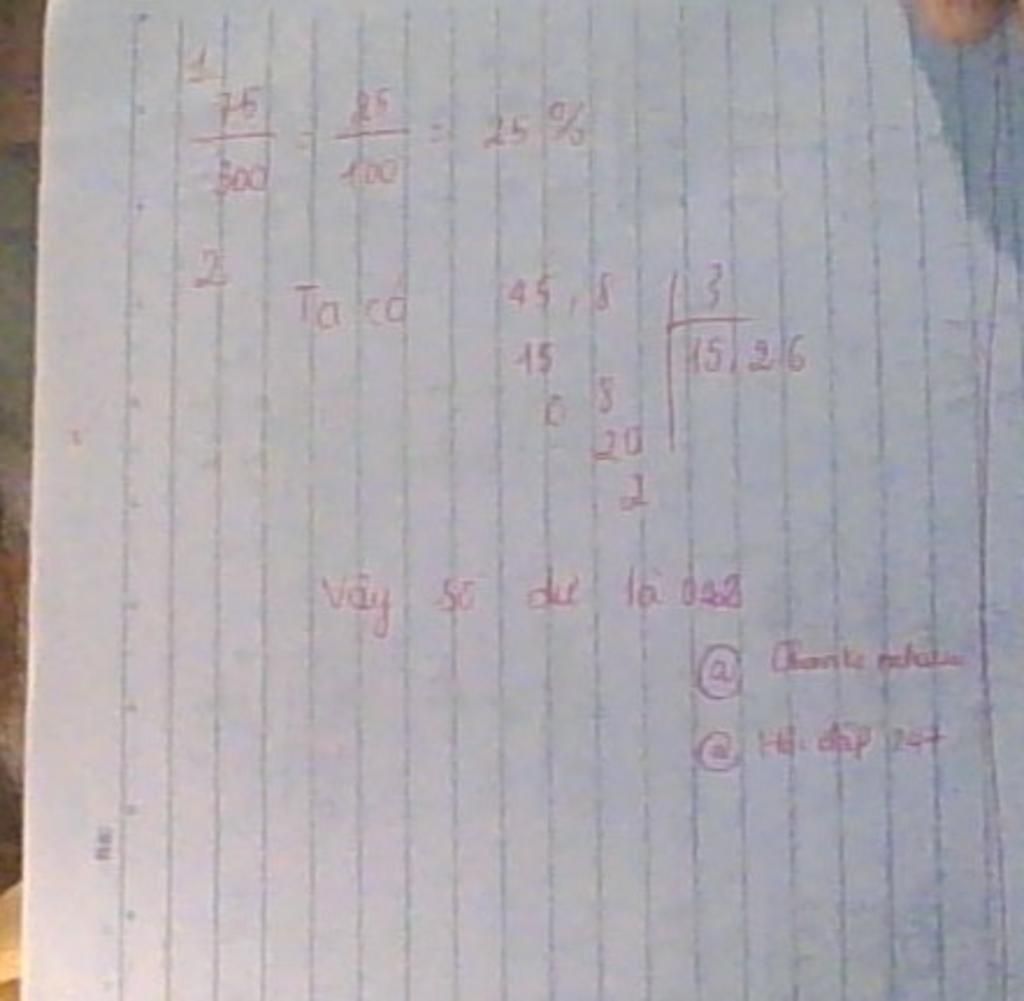 1
75/300 = 25/100 = 25 %
2 Ta có 45,8 | 3
15 | 15,26
0 8
20
2
Vậy số dư là
@
@ Hỏi đáp 247